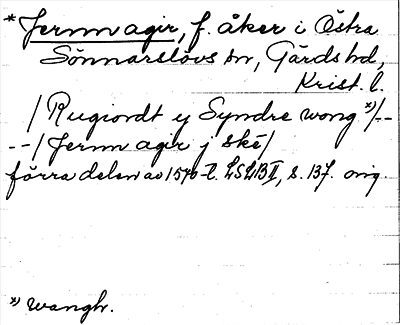 * Jernn agir, f. åker i Östra
Sönnarslövs sn, Gärds hd,
Krist. l.
/ Rugiordt y Syndre wong *)/--
--/ Jernn agir j ske/
förra delen av 1570-t. LSLB II, s. 137. orig.
*) wangh.